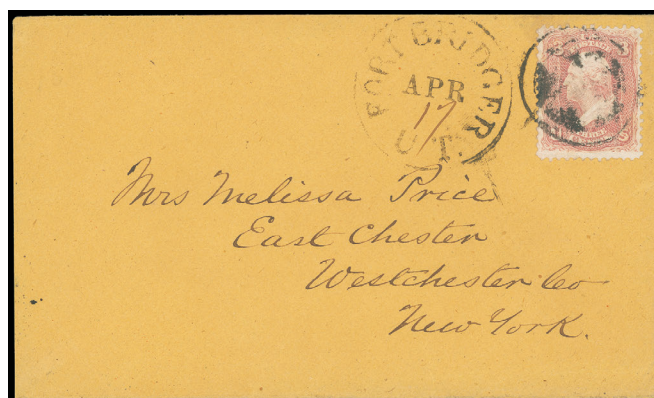 FORT BRIDGER
APR
17
U.T.
Mrs Melissa Price
East Chester
Westchester Co
New York.